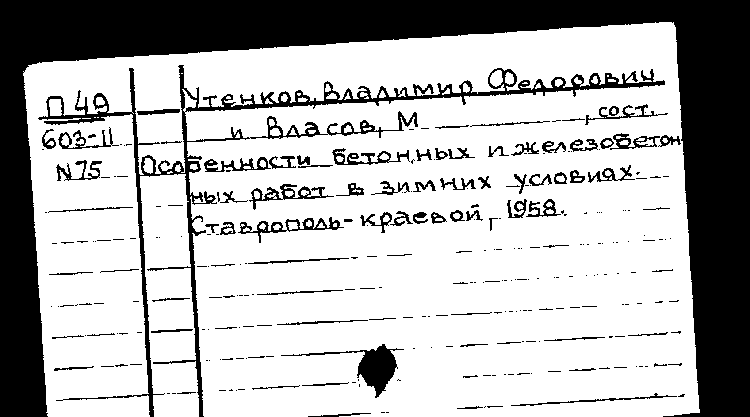 П 49 Утенков, Владимир Федорович
603-11 и Власов, М , сост.
N75 Особенности бетонных и железобетон
ных работ в зимних условиях.
Ставрополь-краевой, 1958.